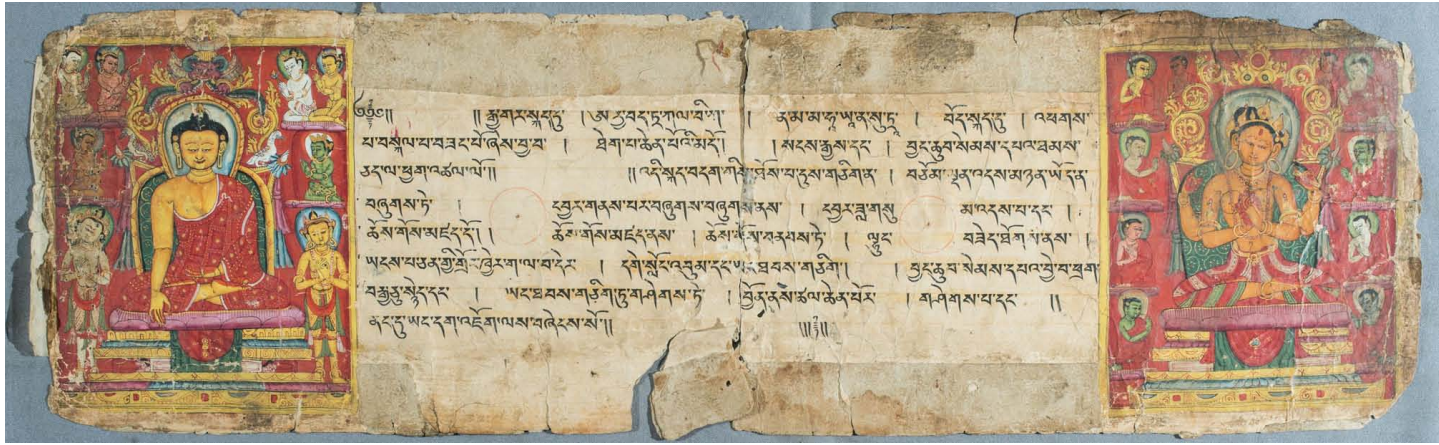 ༄༅།། །། རྒྱ་གར་སྐད་དུ། ། ན་མ་མ་ཧཱ་ཡཱ་ན་སུ་ཏྲཱ། བོད་སྐད་དུ། འཕགས་
པ་བསྐལ་པ་བཟང་པོ་ཞེས་བྱ་བ་ ། ཐེག་པ་ཆེན་པོའི་མདོ། །སངས་རྒྱས་དང་ ། བྱང་ཆུབ་སེམས་དཔའ་ཐམས་
ཅད་ལ་ཕྱག་འཚལ་ལོ།། །།འདི་སྐད་བདག་གིས་ཐོས་པ་དུས་གཅིག་ན་ ། བཅོམ་ལྡན་འདས་མཉན་ཡོད་ན་
བཞུགས་ཏེ་ ། དབྱར་གནས་པར་བཞུགས་བཞུགས་ནས ། དབྱར་ཟླ་གསུ མ་འདས་པ་དང་ །
ཆོས་གོས་མཛད་དོ། ། ཆོས་གོས་མཛད་ནས་ ། ཆོས་གོས་བནབས་ཏེ་ ། ལྷུང་ བཟེད་ཐོགས་ནས་ །
ཡངས་པ་ཅན་གྱི་གྲོང་ཁྱེར་ག་ལ་བ་དེར་ ། དགེ་སློང་འབུམ་དང་ཡང་ཐབས་གཅིག ། བྱང་ཆུབ་སེམས་དཔའ་བྱེ་བ་ཕྲག་
བརྒྱ་སྙེད་དང་ ། ཡང་ཐབས་གཅིག་ཏུ་གཤེགས་ཏེ་ ། ཚལ་ཆེན་པོར ། གཤེགས་པ་དང་ །།
ནང་དུ་ཡང་དག་འཇོག་ལས་བཞེངས་སོ།།